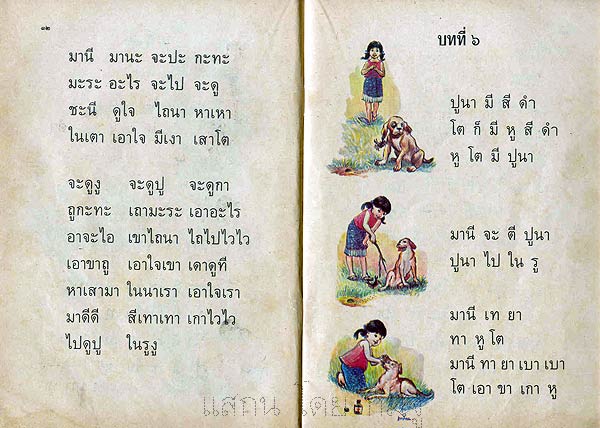 ๑๒
มานี มานะ จะปะ กะทะ
มะระ อะไร จะไป จะดู
ชะนี ดูใจ ไถนา หาเหา
ในเตา เอาใจ มีเงา เสาโต
จะดูงู จะดูปู จะดูกา
ถูกะทะ เถามะระ เอาอะไร
อาจะไอ เขาไถนา ไถไปไวไว
เอาขาถู เอาใจเขา เดาดูที
หาเสามา ในนาเรา เอาใจเรา
มาดีดี สีเทาเทา เกาไวไว
ไปดูปู ในรูงู
บทที่ ๖
ปูนา มี สี ดำ
โต ก็ มี หู สี ดำ
หู โต มี ปูนา
มานี จะ ตี ปูนา
ปูนา ไป ใน รู
มานี เท ยา
ทา หู โต
มานี ทา ยา เบา เบา
โต เอา ขา เกา หู
แสกน โดย